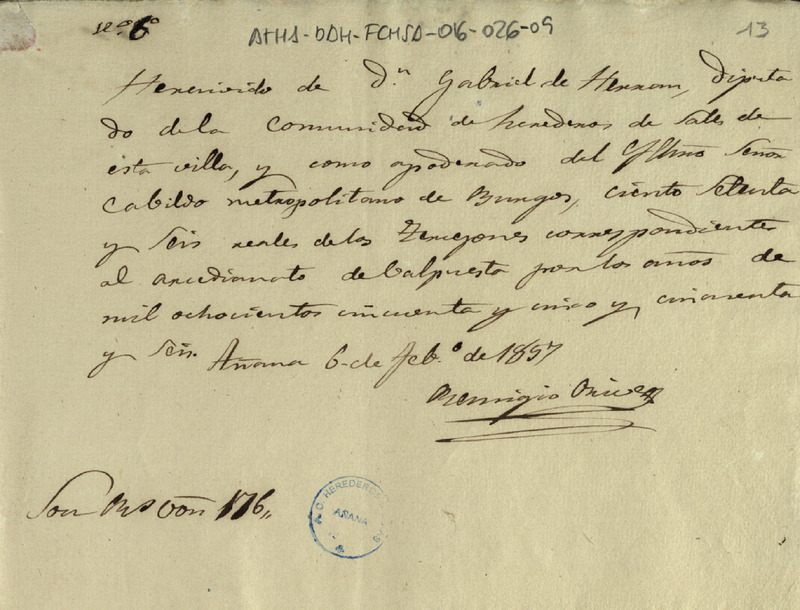 nº 6º
ATHA-DAH-FCHSA-016-026-09
13
He recivido de Dn Gabriel de Herran, Diputa
do de la Comunidad de herederos de Sales de
esta villa, y como apoderado del Yllmo Señor
Cabildo metropolitano de Burgos, ciento setenta
y seis reales de los correspondientes
al arcedianato de Balpuesta por los años de
mil ochocientos cincuenta y cinco y cincuenta
y seis. Añana 6 de Febº de 1857
Remigio
Son Rs von 176,,
C. HEREDEROS
AÑANA